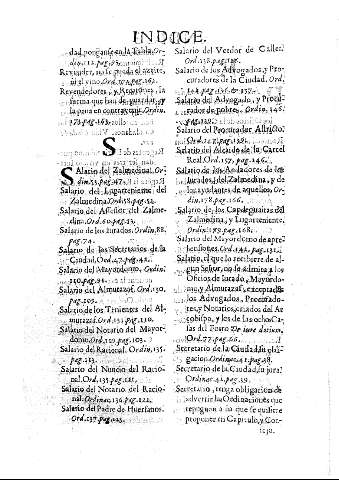 INDICE.
dad pongase en la Tabla. Or-
din.
Revender, no se pueda el azeite,
ni el vino Ord.
Revendedores, y Regatones, la
forma que han de guardar, y
la pena en contravent. Ordin.
S
Salario del Zalmedina. Ordin.
Salario del Lugarteniente del
Zalmedina. Ord.
Salario del Assessor del Zalme-
dina. Ord. 60. pag. 53.
Salario de los Iurados. Ordin. 88.
pag. 74.
Salario de los Secretarios de la
Ciudad. Ord. 47. pag. 42.
Salario del Mayordomo. Ordin.
Salario del Almutazaf. Ord. 130.
pag. 109.
Salario de los Tinientes del Al-
mutazaf. Ord. 133. pag. 110.
Salario del Notario del Mayor-
domo. Ord. pag. 103.
Salario del Racional. Ordin. 135.
pag. 113.
Salario del Nuncio del Racio-
nal. Ord. pag.
Salario del Notario del Racio-
nal. Ordinac. 136. pag. 122.
Salario del Padre de Huerfanos.
Ord. 137. pag.
Salario del Veedor de Calles.
Ord. 138. pag.
Salario de los Advogados, y Pro-
curadores de la Ciudad. Ordin.
Salario del Advogado, y Procu-
rador de pobres. Ordin. 146.
Salario del Procurador Astricto.
Salario del Alcaide de la Carcel
Real. Ord. 157. pag. 146.
Salario de los Andadores de los
Iurados, del Zalmedina, y de
los ayudantes de aquellos. Or-
din. 178. pag. 166.
Salario de los Capdeguaitas del
Zalmedina, y Lugarteniente.
Ordin. 189. pag. 168.
Salario del Mayordomo de apre-
hensiones. Ord. pag. 131.
Salario, el que lo recibiere de al-
gun Señor, no se admita a los
Oficios de Iurado, Mayordo-
mo y Almutazaf, exceptados
los Advogados, Procurado-
res, y Notarios, criados del Ar-
cobispo, y los de las ocho Ca-
sas del Fuero De iure dotium,
Ord. 77. pag. 66.
Secretario de la Ciudad, su obli-
gacion. Ordinac. 41. pag. 38.
Secretario de la Ciudad, su jura.
Ordinac. 41. pag. 39.
Secretario, tenga obligacion de
advertir las Ordinaciones que
repugnan a lo que se quisiere
proponer en Capitulo, y Con-